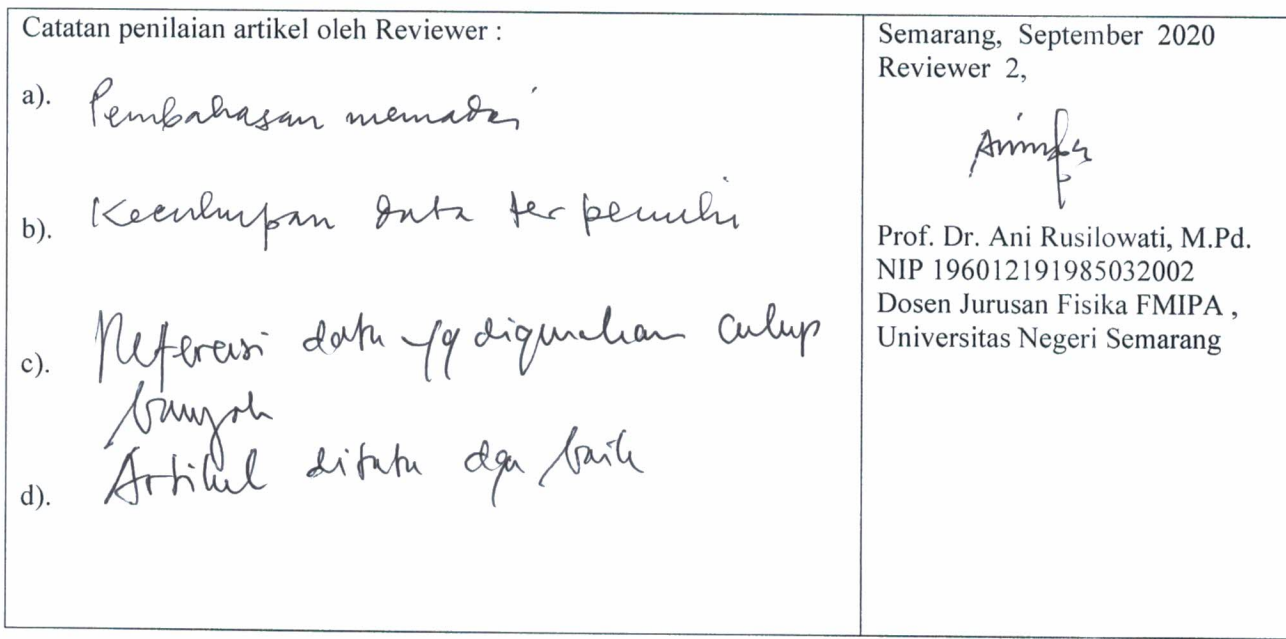 Catatan penilaian artikel oleh Reviewer :
a). Pembahasan memadai
b). Kecukupan data terpenuhi
c). Referensi data yg digunakan cukup
banyak
d). Artikel ditata dgn baik
Semarang, September 2020
Reviewer 2,
Prof. Dr. Ani Rusilowati, M.Pd.
NIP 196012191985032002
Dosen Jurusan Fisika FMIPA ,
Universitas Negeri Semarang